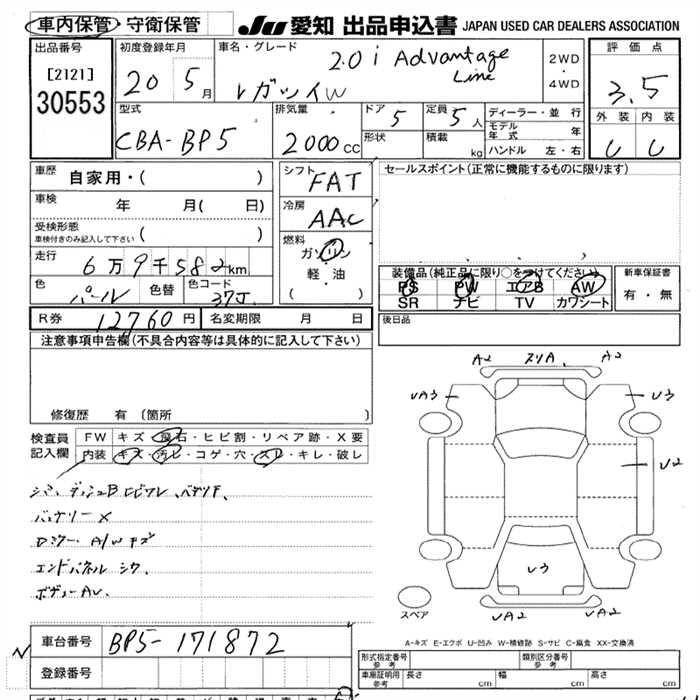 車内保管・守衛保管
JU 愛知 出品申込書 JAPAN USED CAR DEALERS ASSOCIATION
出品番号
[2121]
30553
初度登録年月
20 5月
車名・グレード
2.0i Advantage Line
レガツィW
2WD・4WD
評価点
3.5
外装 内装
U U
型式
CBA-BP5
排気量
2000cc
ドア 5
形状
定員 5人
積載 kg
ディーラー・並行
モデル年式 年
ハンドル 左・右
車歴
自家用・( )
車検
年 月( 日)
受検形態
車検付きのみ記入して下さい ( )
走行
6万9千582km
色
パール
色替
色コード
37J
シフト
FAT
冷房
AAC
燃料
ガソリン
軽・油
( )
セールスポイント(正常に機能するものに限ります)
装備品(純正品に限り○をつけてください)
PS PW エアB AW
SR ナビ TV カワシート
新車保証書
有・無
R券 12760円
名変期限 月 日
後日品
注意事項申告欄(不具合内容等は具体的に記入して下さい)
修復歴 有(箇所 )
検査員記入欄
FW キズ・飛石・ヒビ割・リペア跡・X要
内装 キズ・汚レ・コゲ・穴・スレ・キレ・破レ
バッテリー×
Dミラー A/Wキズ
エンドパネル シワ、
ボデーAU、
A2 A2
UA3 U3
U2
U3
UA2 UA2
スペア
A-キズ E-エクボ U-凹み W-補修跡 S-サビ C-腐食 XX-交換済
車台番号 BP5-171872
登録番号
N
形式指定番号 参考
類別区分番号 参考
車庫証明用 参考
長さ cm 幅 cm 高さ cm